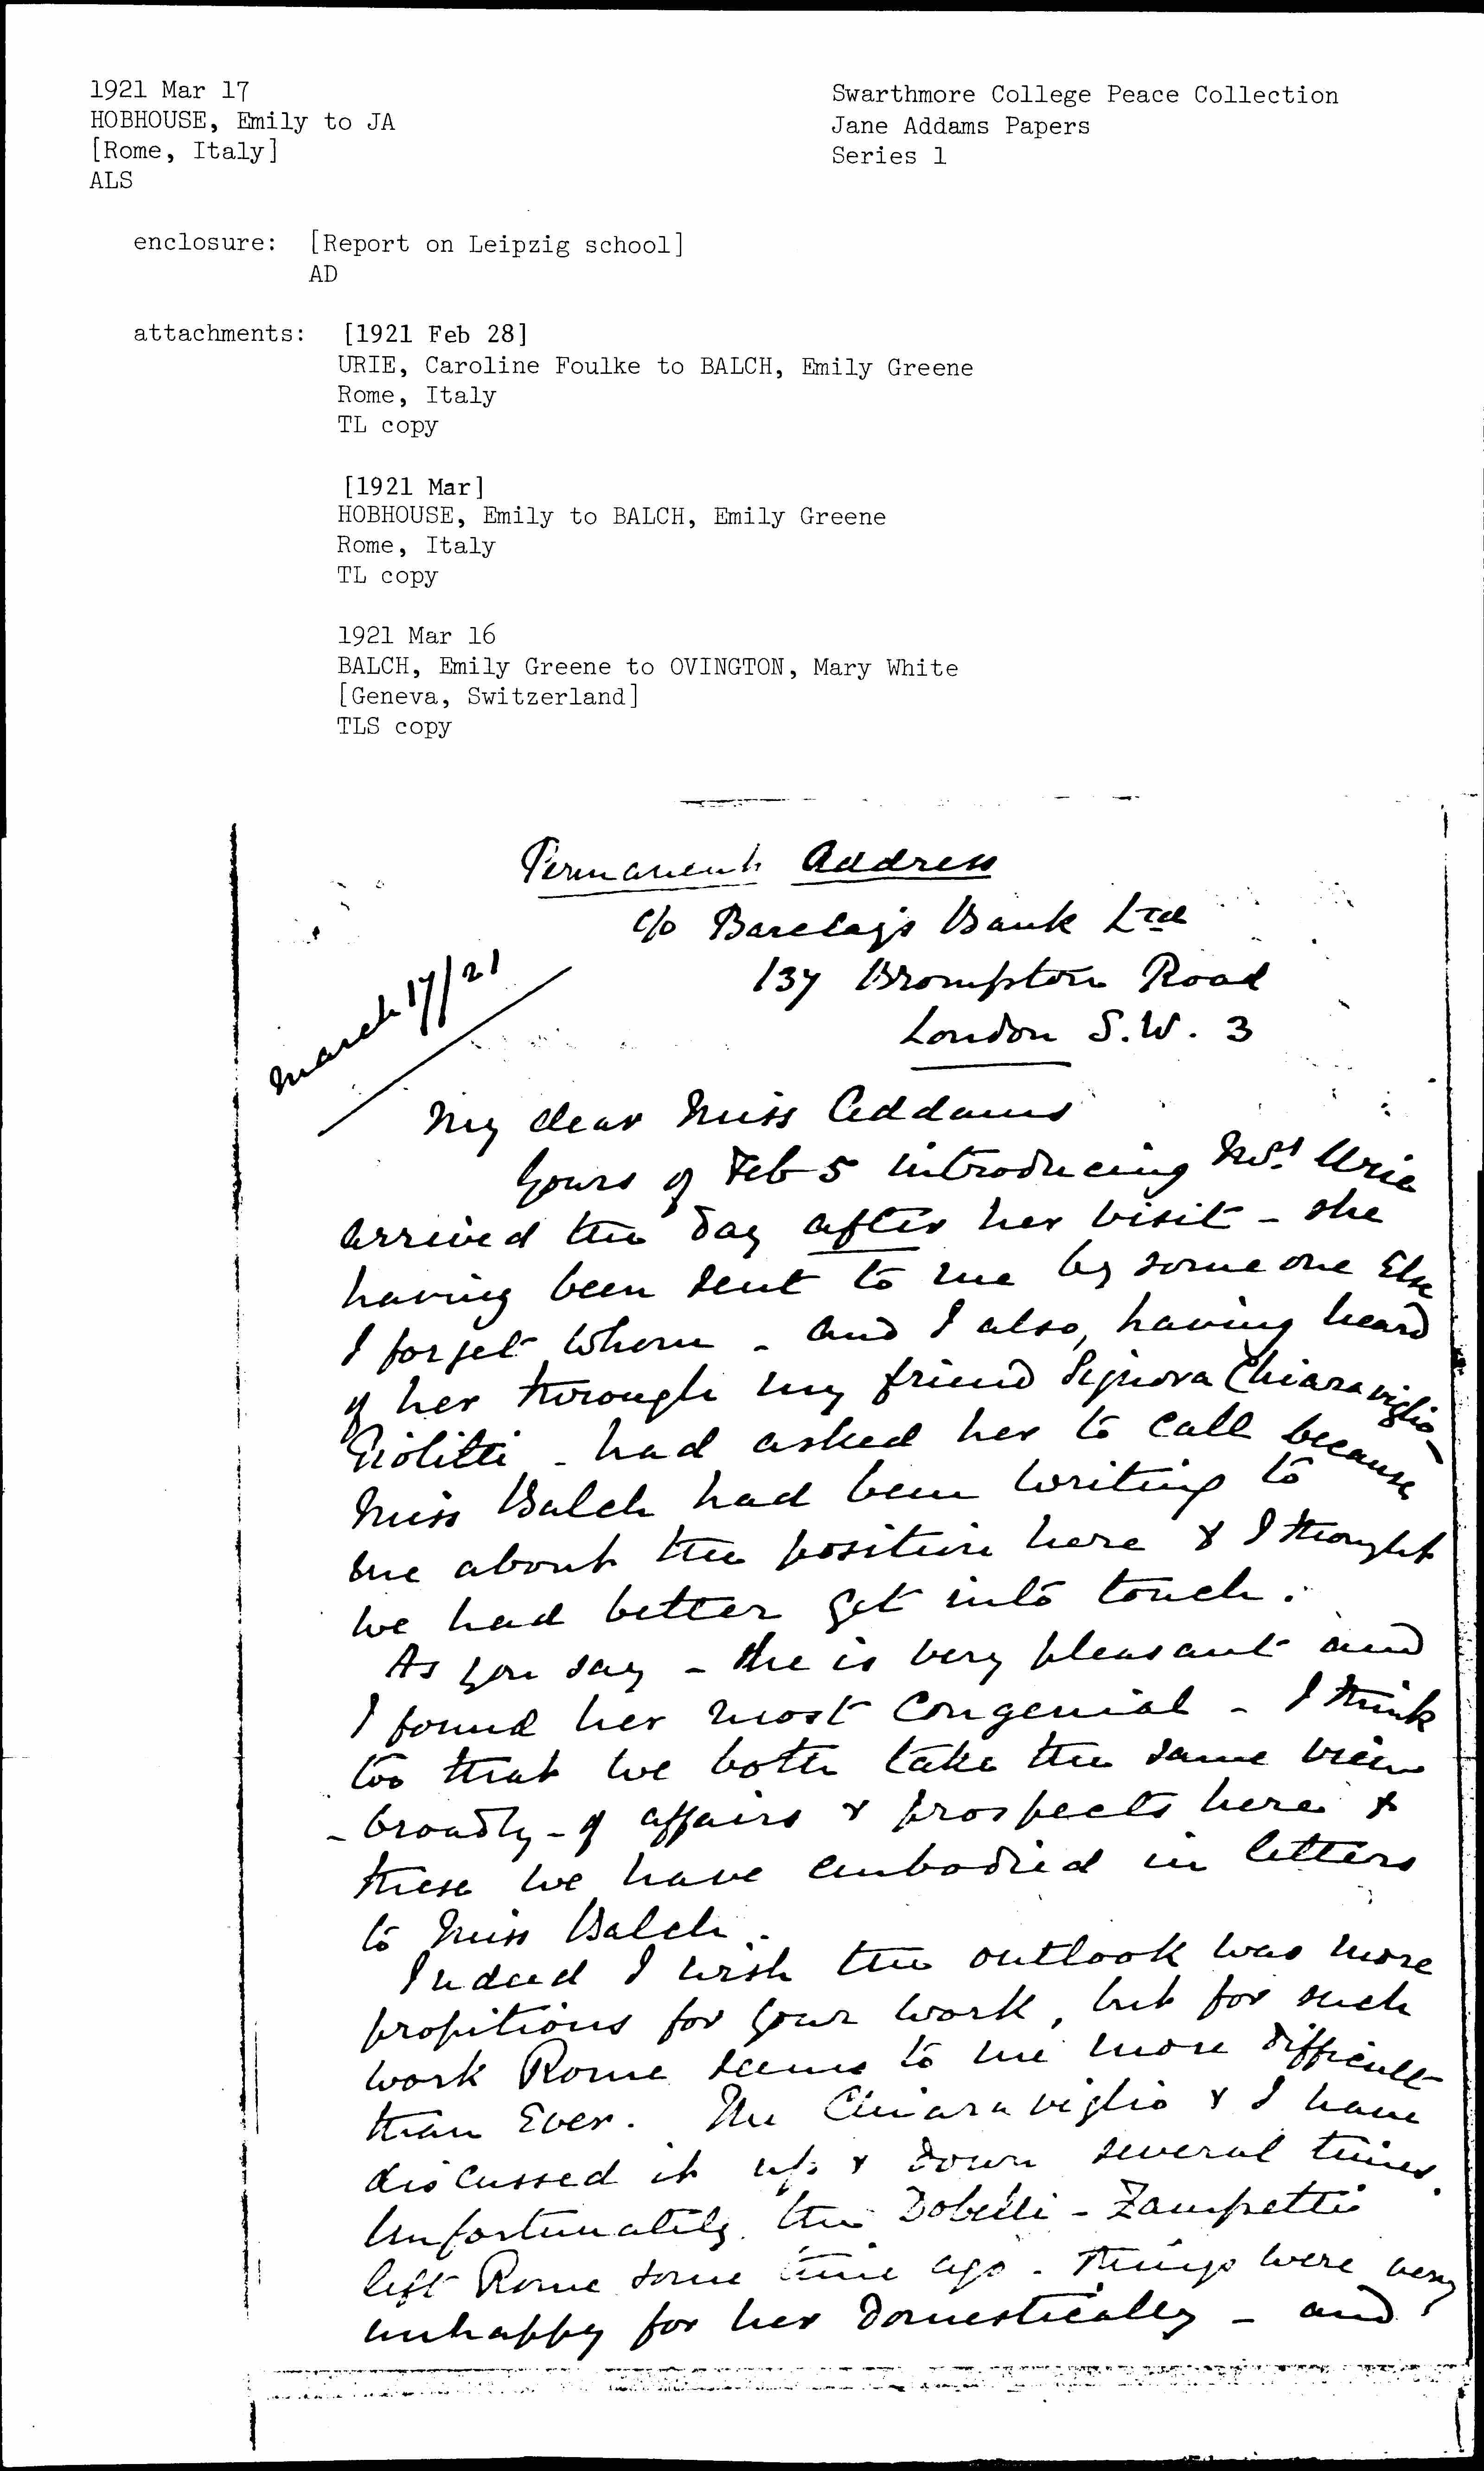 1921 Mar 17
HOBHOUSE, Emily to JA
[Rome, Italy]
ALS
Swarthmore College Peace Collection
Jane Addams Papers
Series 1
enclosure: [Report on Leipzig school]
AD
attachments: [1921 Feb 28]
URIE, Caroline Foulke to BALCH, Emily Greene
Rome, Italy
TL copy
[1921 Mar]
HOBHOUSE, Emily to BALCH, Emily Greene
Rome, Italy
TL copy
1921 Mar 16
BALCH, Emily Greene to OVINGTON, Mary White
[Geneva, Switzerland]
TLS copy
Permanent Address
c/o Barclay's Bank Ltd
137 Brompton Road
London S.W. 3
March 17/21
My dear Miss Addams
Yours of Feb 5 introducing Mrs. Urie
arrived the day after her visit - she
having been sent to me by some one Else
I forget whom - and I also, having heard
of her through my friend Signora Chiaraviglio-
Giolitti - had asked her to call because
Miss Balch had been writing to
me about the position here & I thought
we had better get into touch.
As you say - she is very pleasant and
I found her most congenial - I think
too that we both take the same view
- broadly - of affairs & prospects here &
these we have embodied in letters
to Miss Balch.
Indeed I wish the outlook was more
propitious for your work, but for such
work Rome seems to me more difficult
than Ever. The Chiaraviglio & I have
discussed it up & down several times.
Unfortunately the Dobelli-Zampetti
left Rome some time ago. Things were very
unhappy for her domestically - and